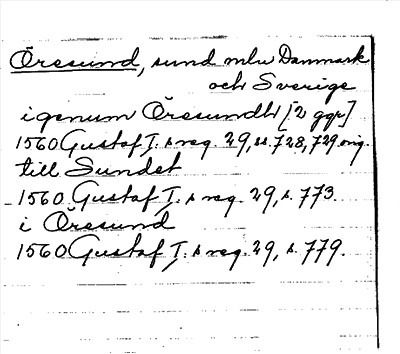 Öresund, sund mlu Danmark
och Sverige
igenum Öresundh [2 ggr]
1560 Gustaf I. s reg. 29, ss. 728, 729 orig.
till Sundet
1560 Gustaf I. s reg. 29, s. 773.
i Öresund
1560 Gustaf I. s reg. 29, s. 779.